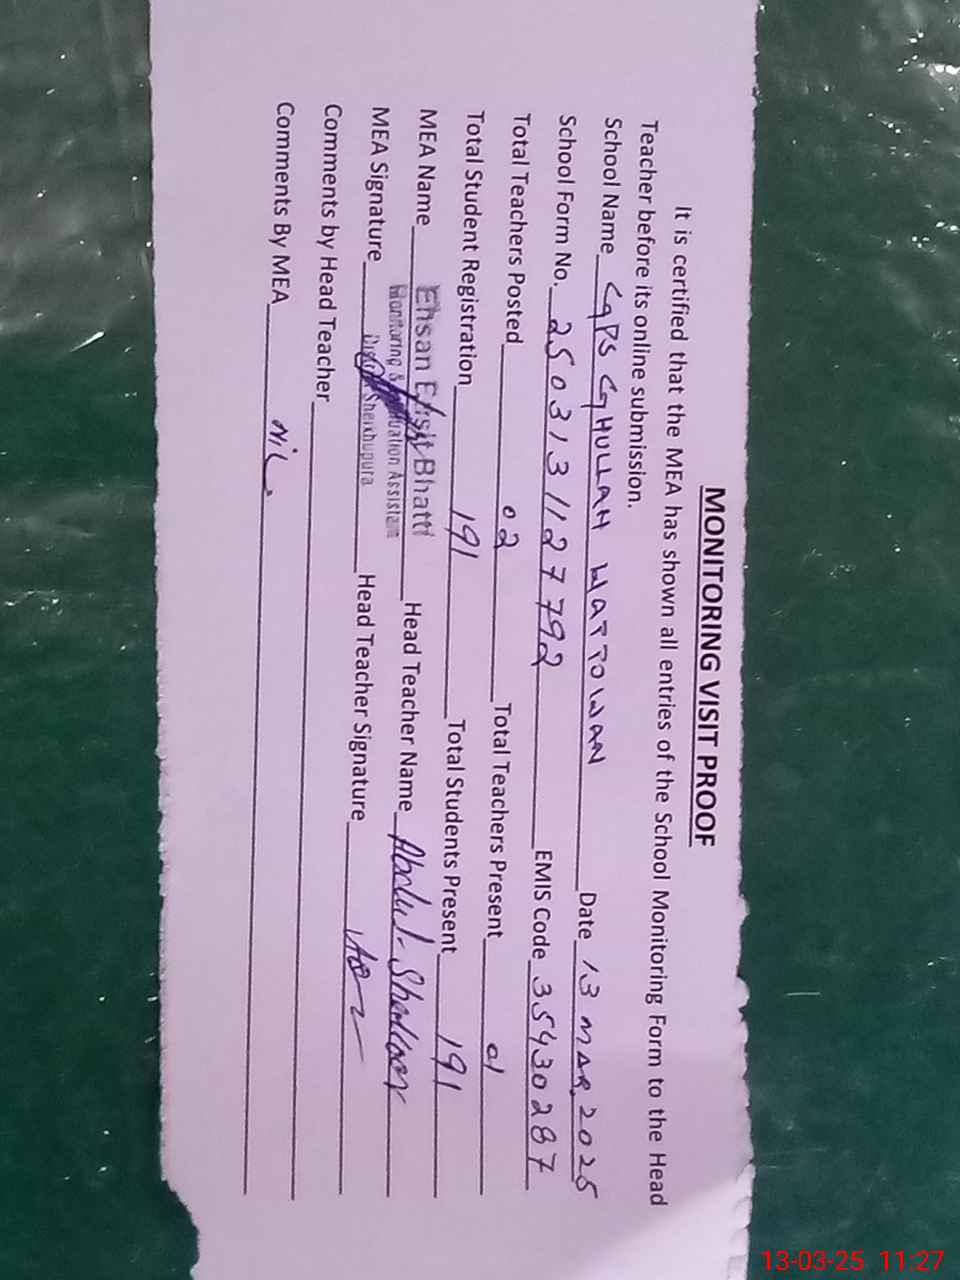 MONITORING VISIT PROOF
It is certified that the MEA has shown all entries of the School Monitoring Form to the Head
Teacher before its online submission.
School Name GGPS GHULLAH WATTOWAN Date 13 MAR, 2025
School Form No. 2503131127792 EMIS Code 35430287
Total Teachers Posted 02 Total Teachers Present 01
Total Student Registration 191 Total Students Present 191
MEA Name Ehsan Bhatti Head Teacher Name Abdul Shakoor
Monitoring & Assistant
MEA Signature Sheikhupura Head Teacher Signature
Comments by Head Teacher
Comments By MEA NIL.
13-03-25 11:27